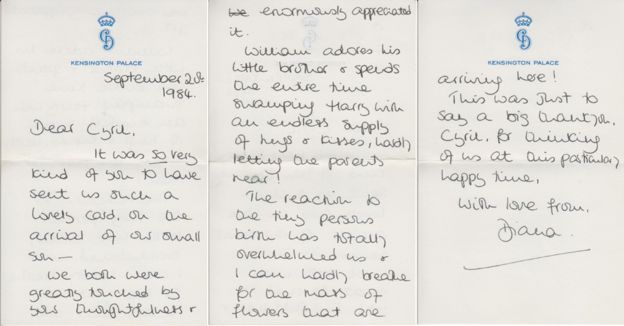 KENSINGTON PALACE
September 20th
1984.
Dear Cyril,
It was so very
kind of you to have
sent us such a
lovely card, on the
arrival of our small
son —
We both were
greatly touched by
your thoughtfulness &
we enormously appreciated
it.
William adores his
little brother & spends
the entire time
swamping Harry with
an endless supply
of hugs & kisses, hardly
letting the parents
near!
The reaction to
one tiny persons
birth has totally
overwhelmed us &
I can hardly breathe
for the mass of
flowers that are
KENSINGTON PALACE
arriving here!
This was just to
say a big thank you,
Cyril, for thinking
of us at this particularly
happy time,
With love from,
Diana.